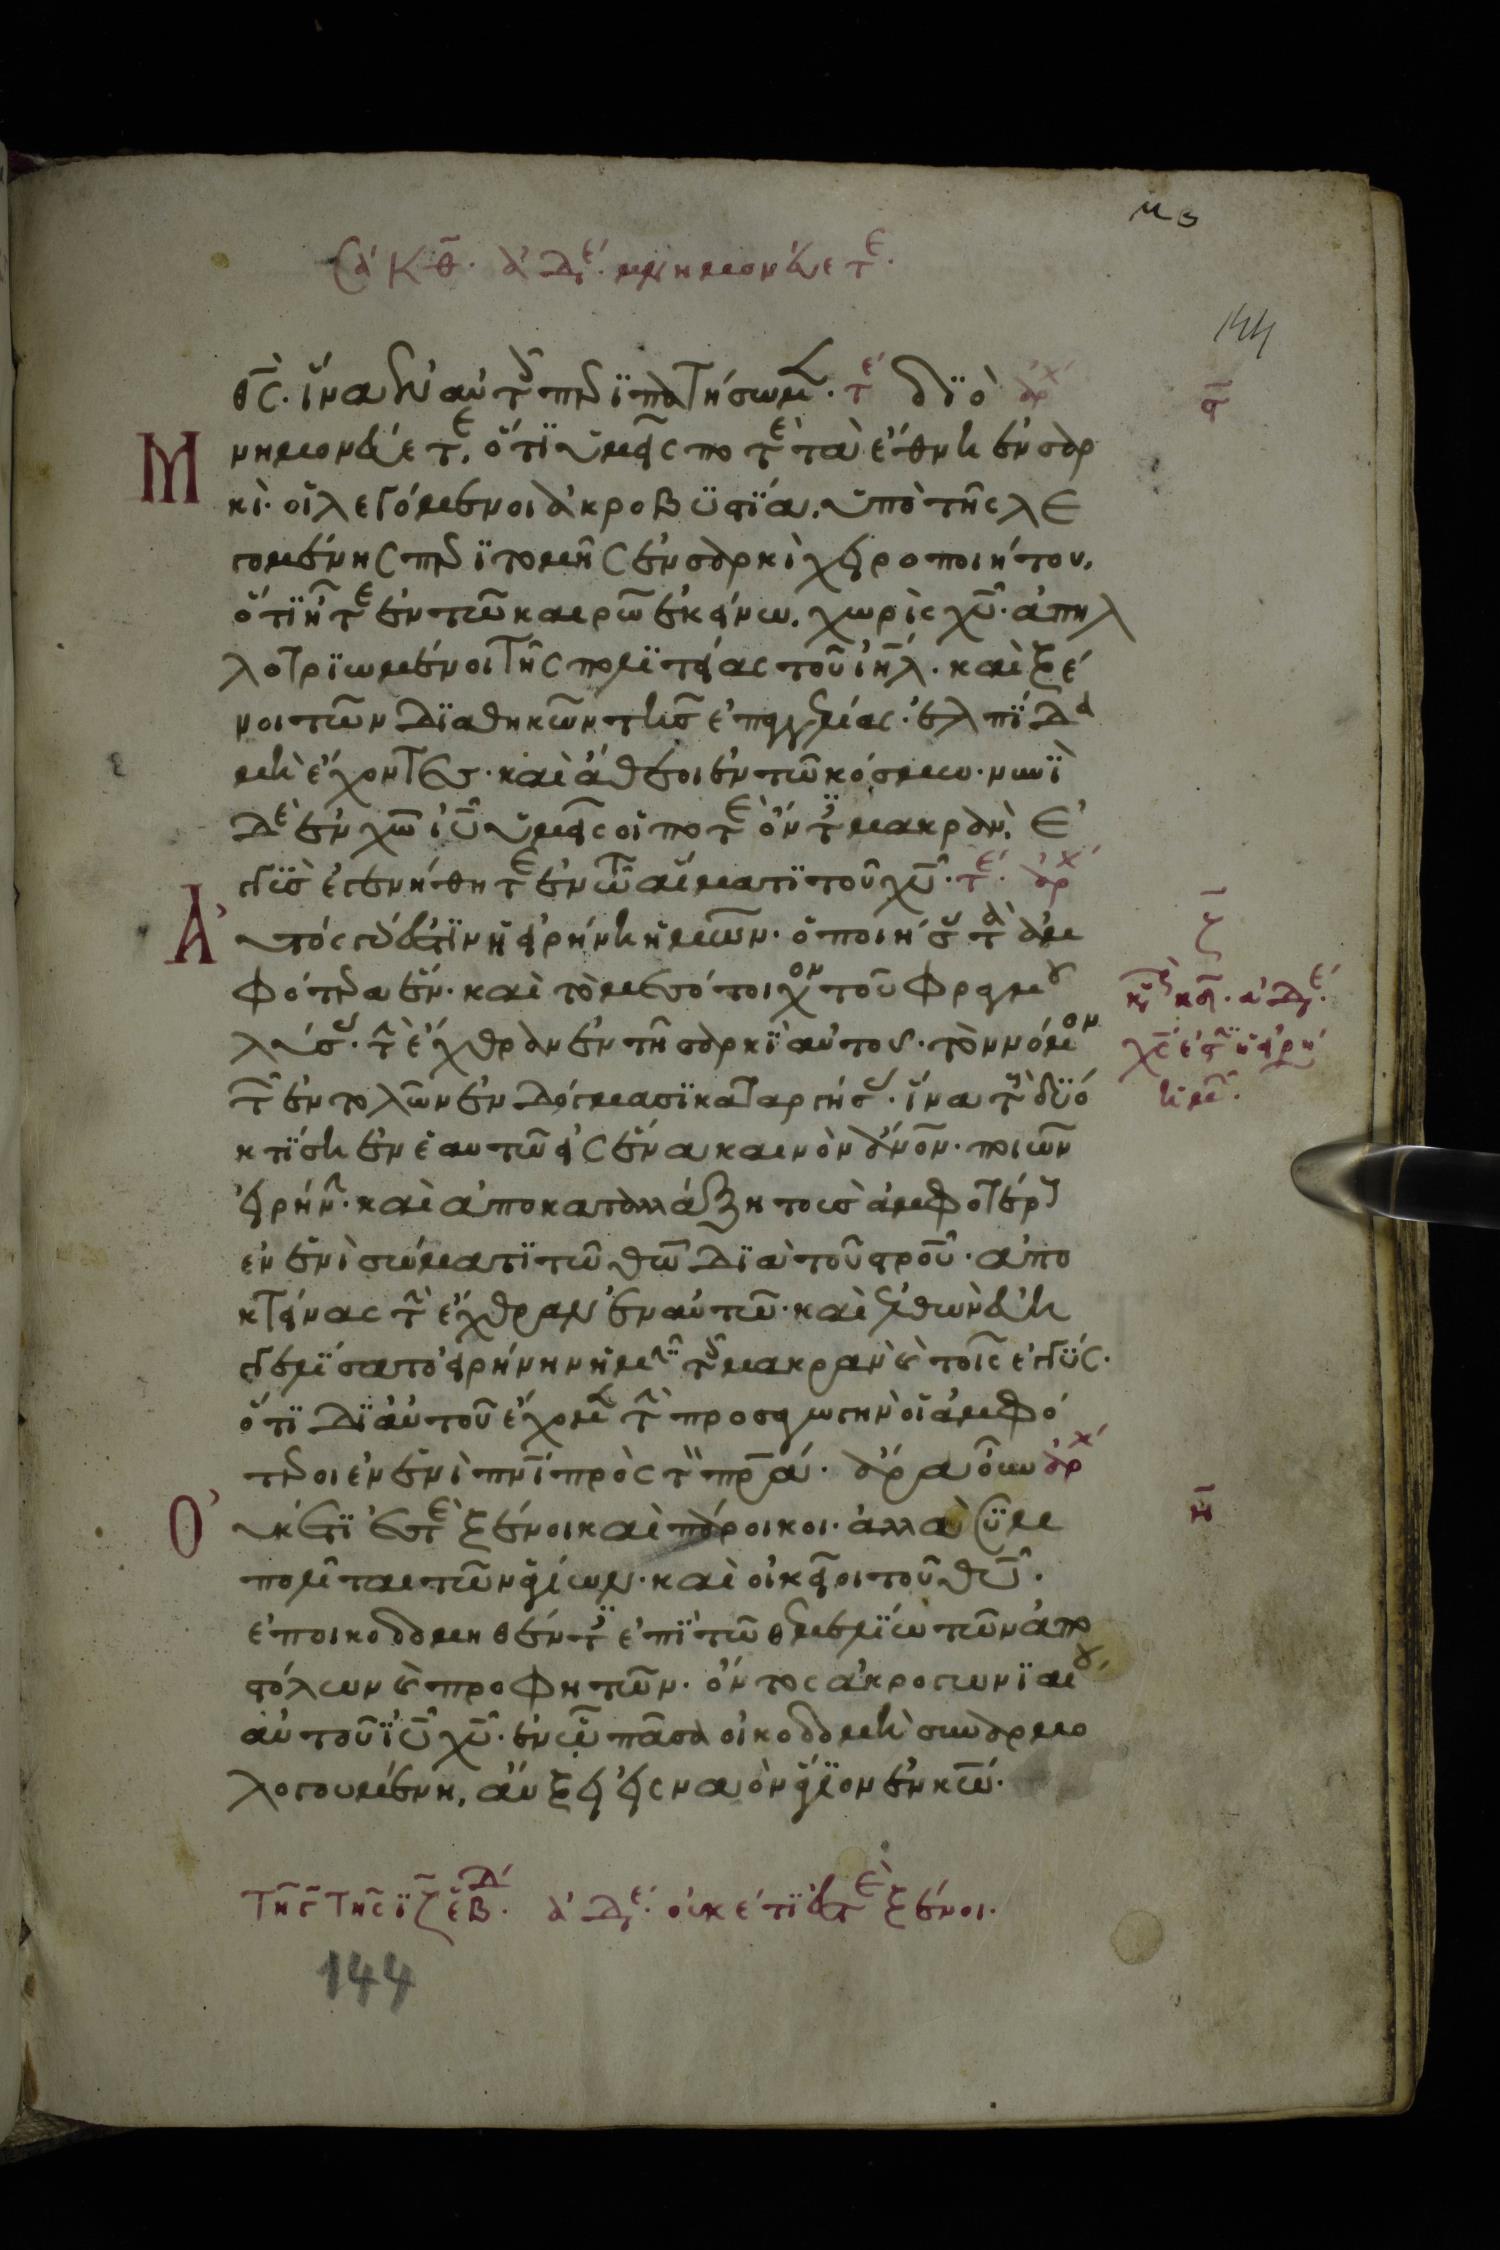 Σα Κθ. ἀδε. μνημονεύετε.
144
θς. ἵνα ἐν αὐτοῖς περϊπατήσωμεν. τε διὸ ἀρχ
ϛ
Μνημονεύετε, ὅτϊ ὑμεῖς ποτὲ τὰ ἔθνη ἐν σαρ
κὶ. οἱ λεγόμενοι ἀκροβυστϊα. ὑπὸ τῆς λε
γομένης περϊτομῆς ἐν σαρκὶ χειροποιήτου.
ὅτϊ ἦτε ἐν τῶ καιρῶ ἐκείνω. χωρὶς χυ. ἀπηλ
λοτρϊωμένοι τῆς πολϊτείας τοῦ ιηλ. καὶ ξέ
νοι τῶν διαθηκῶν τῆς ἐπαγγελίας. ἐλπίδα
μὴ ἔχοντες. καὶ ἄθεοι ἐν τῶ κόσμω. νυνὶ
δὲ ἐν χω ιυ ὑμεῖς οἵ ποτὲ ὄντες μακρὰν, ἐ
γγὺς ἐγενήθητε ἐν τῶ αἵματϊ τοῦ χυ. τε. ἀρχ
ζ
Αὐτός γάρ ἐστϊν ἡ εἰρήνη ἡμῶν. ὁ ποιήσας τὰ ἀμ
φότερα ἕν. καὶ τὸ μεσότοιχον τοῦ φραγμοῦ
κυ κθ. αδε.
λύσας. τὴν ἔχθραν ἐν τῆ σαρκὶ αὐτοῦ. τὸν νόμον
χς ἐστιν ἡ εἰρή
τῶν ἐντολῶν ἐν δόγμασϊ καταργήσας. ἵνα τοὺς δύο
νη ημ.
κτίση ἐν ἑαυτῶ εἰς ἕνα καινὸν ἄνον. ποιῶν
εἰρήνην. καὶ ἀποκαταλλάξη τοὺς ἀμφοτέρους
ἐν ἑνὶ σώματϊ τῶ θω διὰ τοῦ στρου. ἀπο
κτείνας τὴν ἔχθραν ἐν αὐτῶ. καὶ ἐλθὼν εὐη
γγελίσατο εἰρήνην ἡμῖν τοῖς μακρὰν καὶ τοῖς ἐγγύς.
ὅτϊ δι αὐτοῦ ἔχομεν τὴν προσαγωγὴν οἱ ἀμφό
τεροι ἐν ἑνὶ πνϊ πρὸς τὸν πρα. ἄρα οὖν ἀρχ
η
Οὐκέτϊ ἐστὲ ξένοι καὶ πάροικοι. ἀλλὰ συμ
πολῖται τῶν ἁγίων. καὶ οἰκεῖοι τοῦ θυ.
ἐποικοδομηθέντες ἐπὶ τῶ θεμελίω τῶν ἀπο
στόλων καὶ προφητῶν. ὄντος ἀκρογωνιαίου
αὐτοῦ ιυ χυ. ἐν ὧ πᾶσα οἰκοδομὴ συναρμο
λογουμένη, αὔξει εἰς ναὸν ἅγϊον ἐν κω.
Τῆς Τῆς ϊζ εβδ. ἀδε. οὐκέτϊ ἐστὲ ξένοι.
144